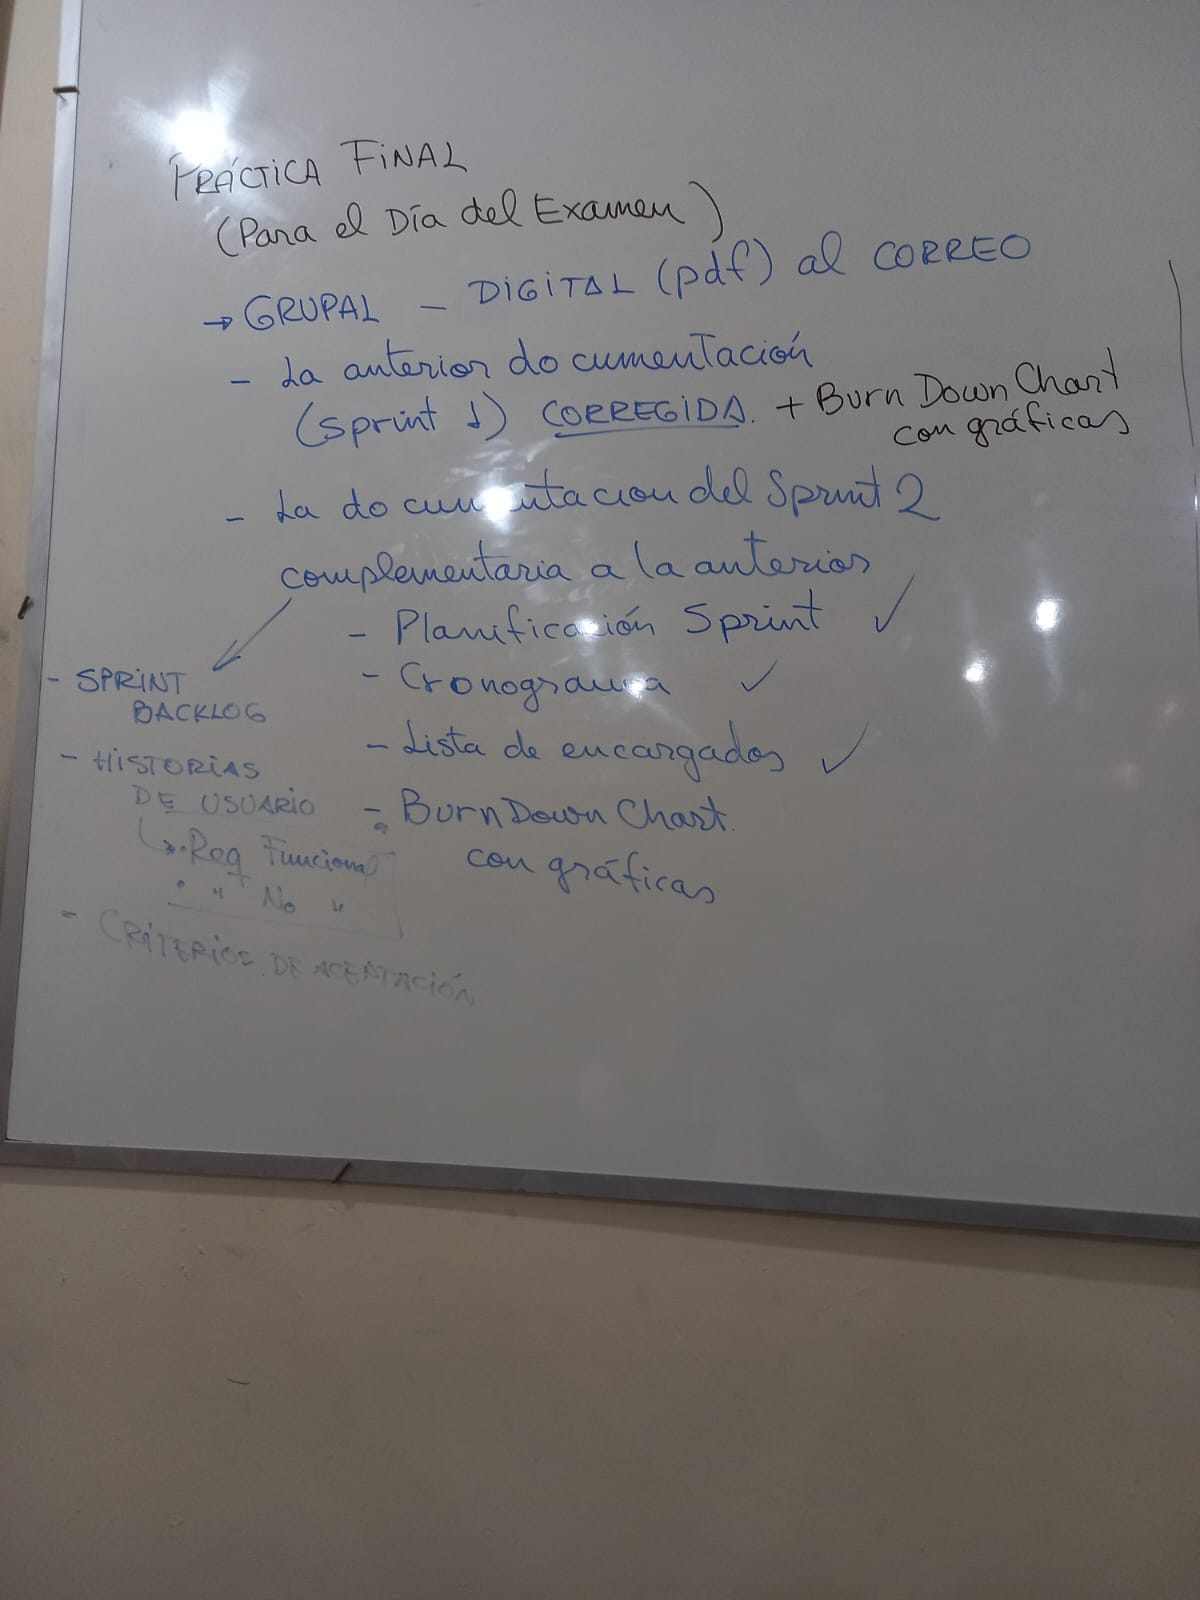 PRÁCTICA FiNAL
(Para el Día del Examen)
→ GRUPAL – DiGiTAL (pdf) al CORREO
– La anterior documentación
(sprint 1) CORREGiDA. + Burn Down Chart
con gráficas
– La documentacion del Sprint 2
complementaria a la anterior
– Planificación Sprint ✓
– Cronograma ✓
– Lista de encargados ✓
– BurnDown Chart.
con gráficas
– SPRiNT
BACKLOG
– HiSTORiAS
DE USUARiO
↳ • Req Funcional
• " No "
– CRiTERiOS DE ACEPTACiÓN